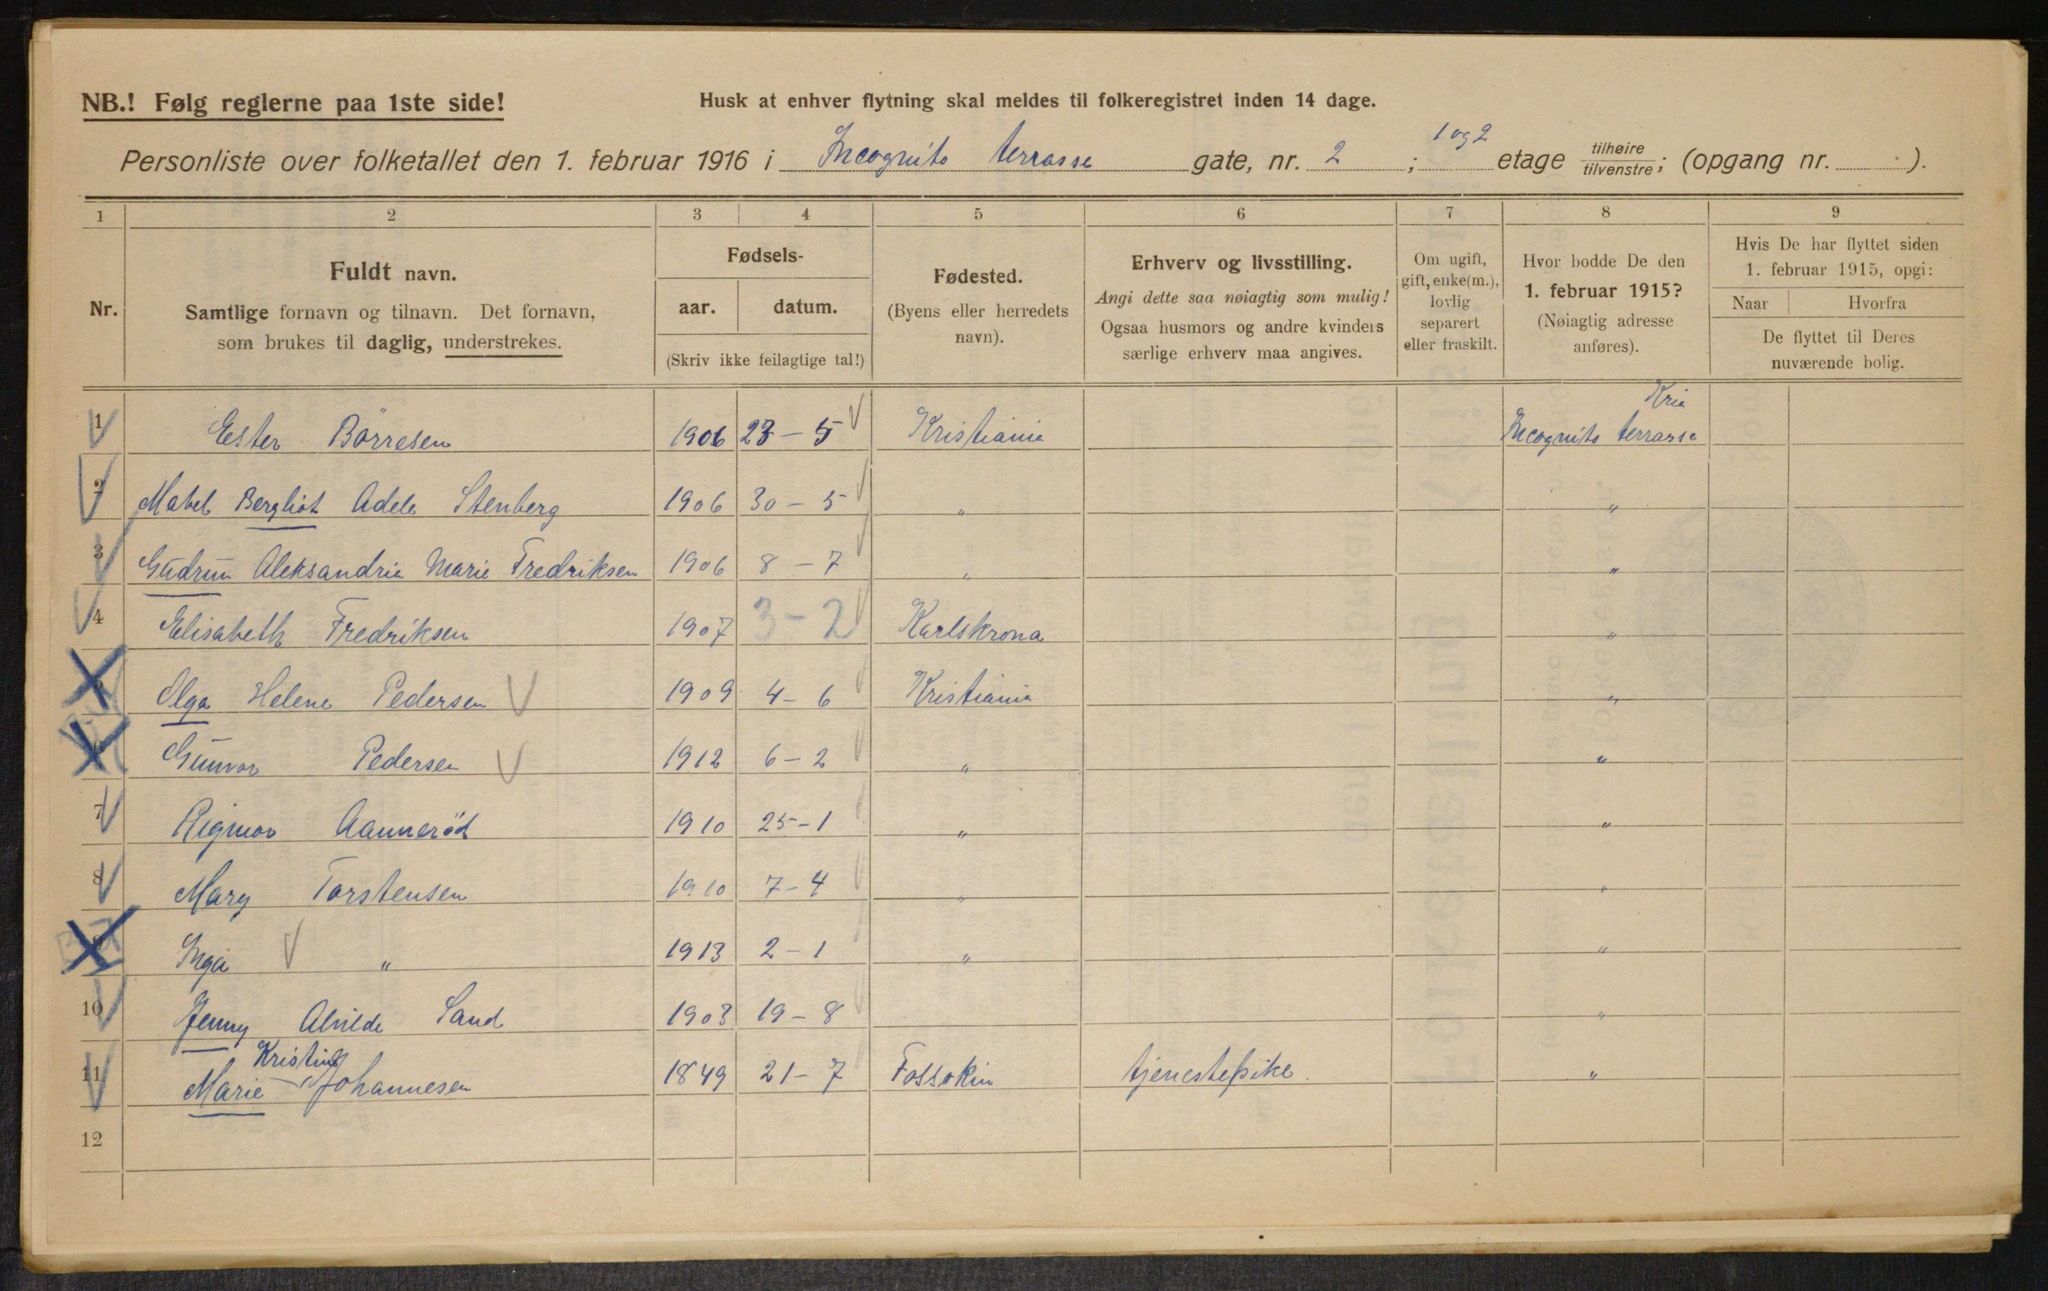 NB.! Følg reglerne paa 1ste side!
Husk at enhver flytning skal meldes til folkeregistret inden 14 dage.
Personliste over folketallet den 1. februar 1916 i Incognito terrasse gate, nr. 2 ; 1 og 2 etage tilhøire/tilvenstre; (opgang nr. ).
1 2 3 4 5 6 7 8 9
Nr.
Fuldt navn.
Samtlige fornavn og tilnavn. Det fornavn,
som brukes til daglig, understrekes.
Fødsels-
aar. datum.
(Skriv ikke feilagtige tal!)
Fødested.
(Byens eller herredets
navn).
Erhverv og livsstilling.
Angi dette saa nøiagtig som mulig!
Ogsaa husmors og andre kvinders
særlige erhverv maa angives.
Om ugift,
gift, enke(m.),
lovlig
separert
eller fraskilt.
Hvor bodde De den
1. februar 1915?
(Nøiagtig adresse
anføres).
Hvis De har flyttet siden
1. februar 1915, opgi:
Naar Hvorfra
De flyttet til Deres
nuværende bolig.
Kria
1 Ester Börresen 1906 23 – 5 Kristiania Incognito terrasse
2 Mabel Bergliot Adele Stenberg 1906 30 – 5 " "
3 Gudrun Aleksandria Marie Fredriksen 1906 8 – 7 " "
4 Elisabeth Fredriksen 1907 3 – 2 Karlskrona "
5 Olga Helene Pedersen 1909 4 – 6 Kristiania "
6 Gunvor Pedersen 1912 6 – 2 " "
7 Rigmor Aanneröd 1910 25 – 1 " "
8 Mary Torstensen 1910 7 – 4 " "
9 Inga " 1913 2 – 1 " "
10 Jenny Alvilde Sand 1903 19 – 8 "
Kristine
11 Marie Johannesen 1849 21 – 7 Fossokin tjenestepike. "
12